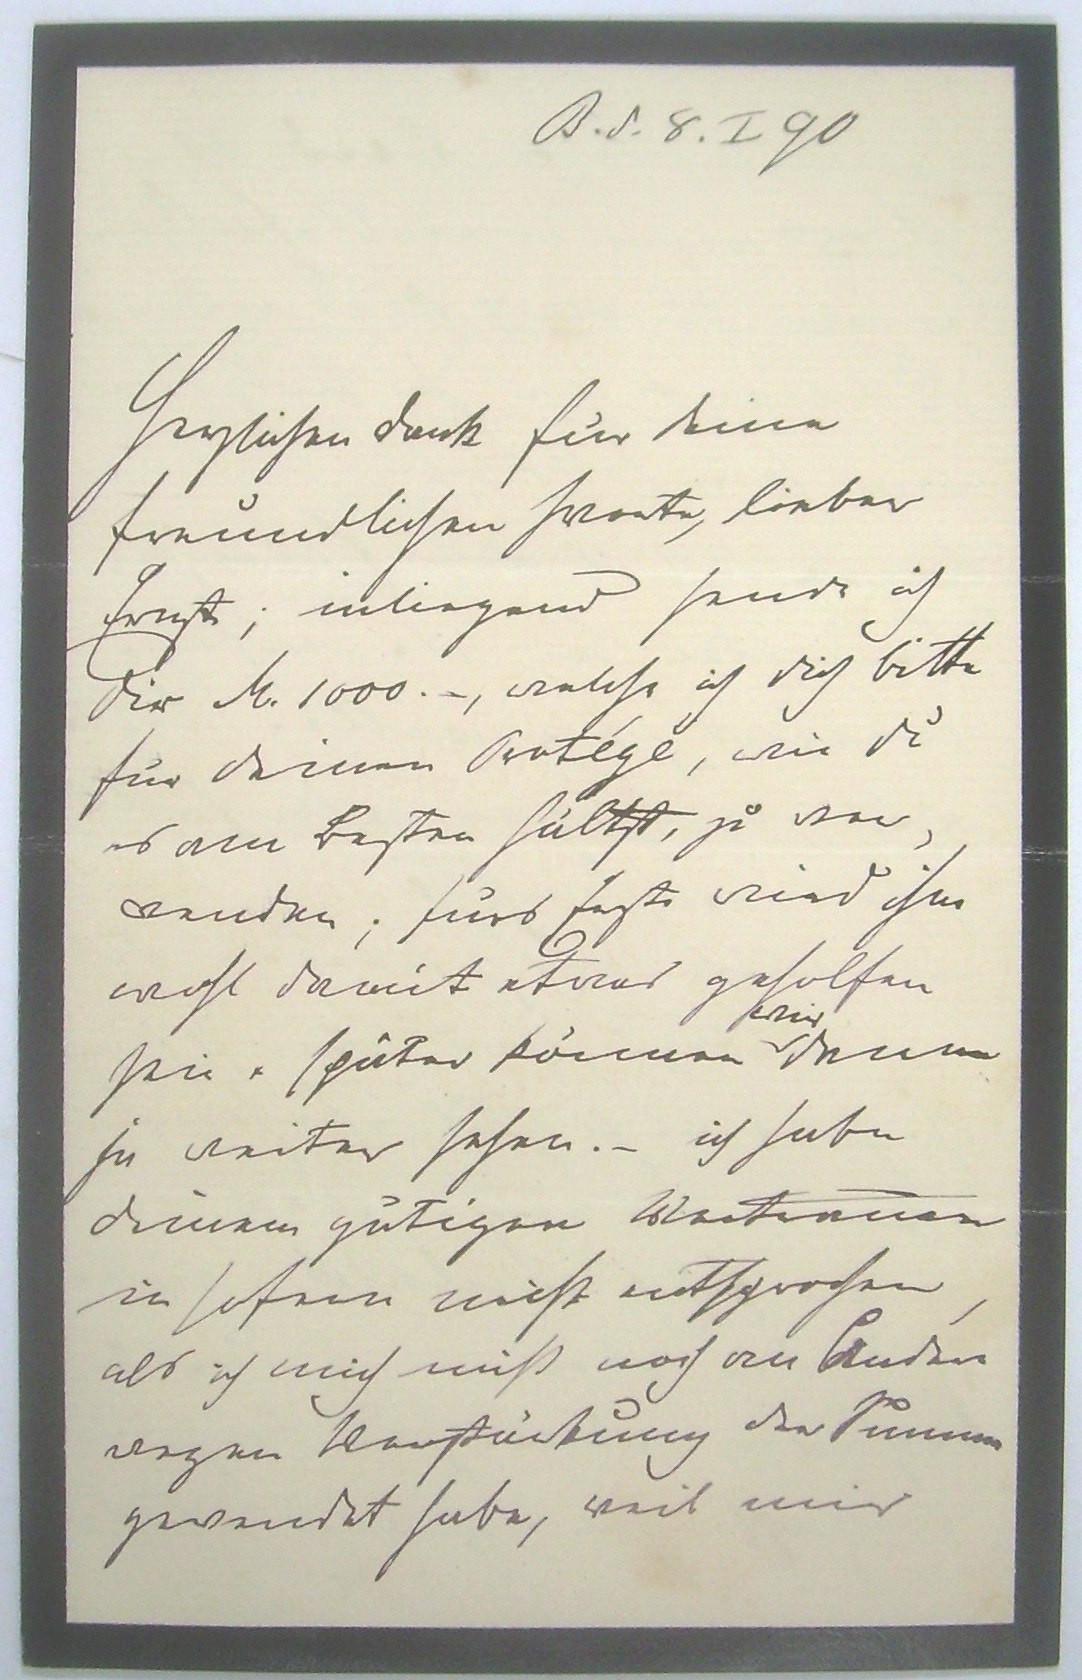 B. d. 8. I 90
Herzlichen Dank für Deine
freundlichen Worte, lieber
Ernst; inliegend sende ich
Dir M. 1000.–, welche ich Dich bitte
für Deinen Protégé, wie Du
es am Besten hältst, zu ver,
wenden; fürs Erste wird ihm
wohl damit etwas geholfen
sein. später können wir dann
ja weiter sehen. – ich habe
Deinem gütigen Vertrauen
in sofern nicht entsprochen,
als ich mich nicht noch an Andere
wegen Verstärkung der Summe
gewendet habe, weil mir